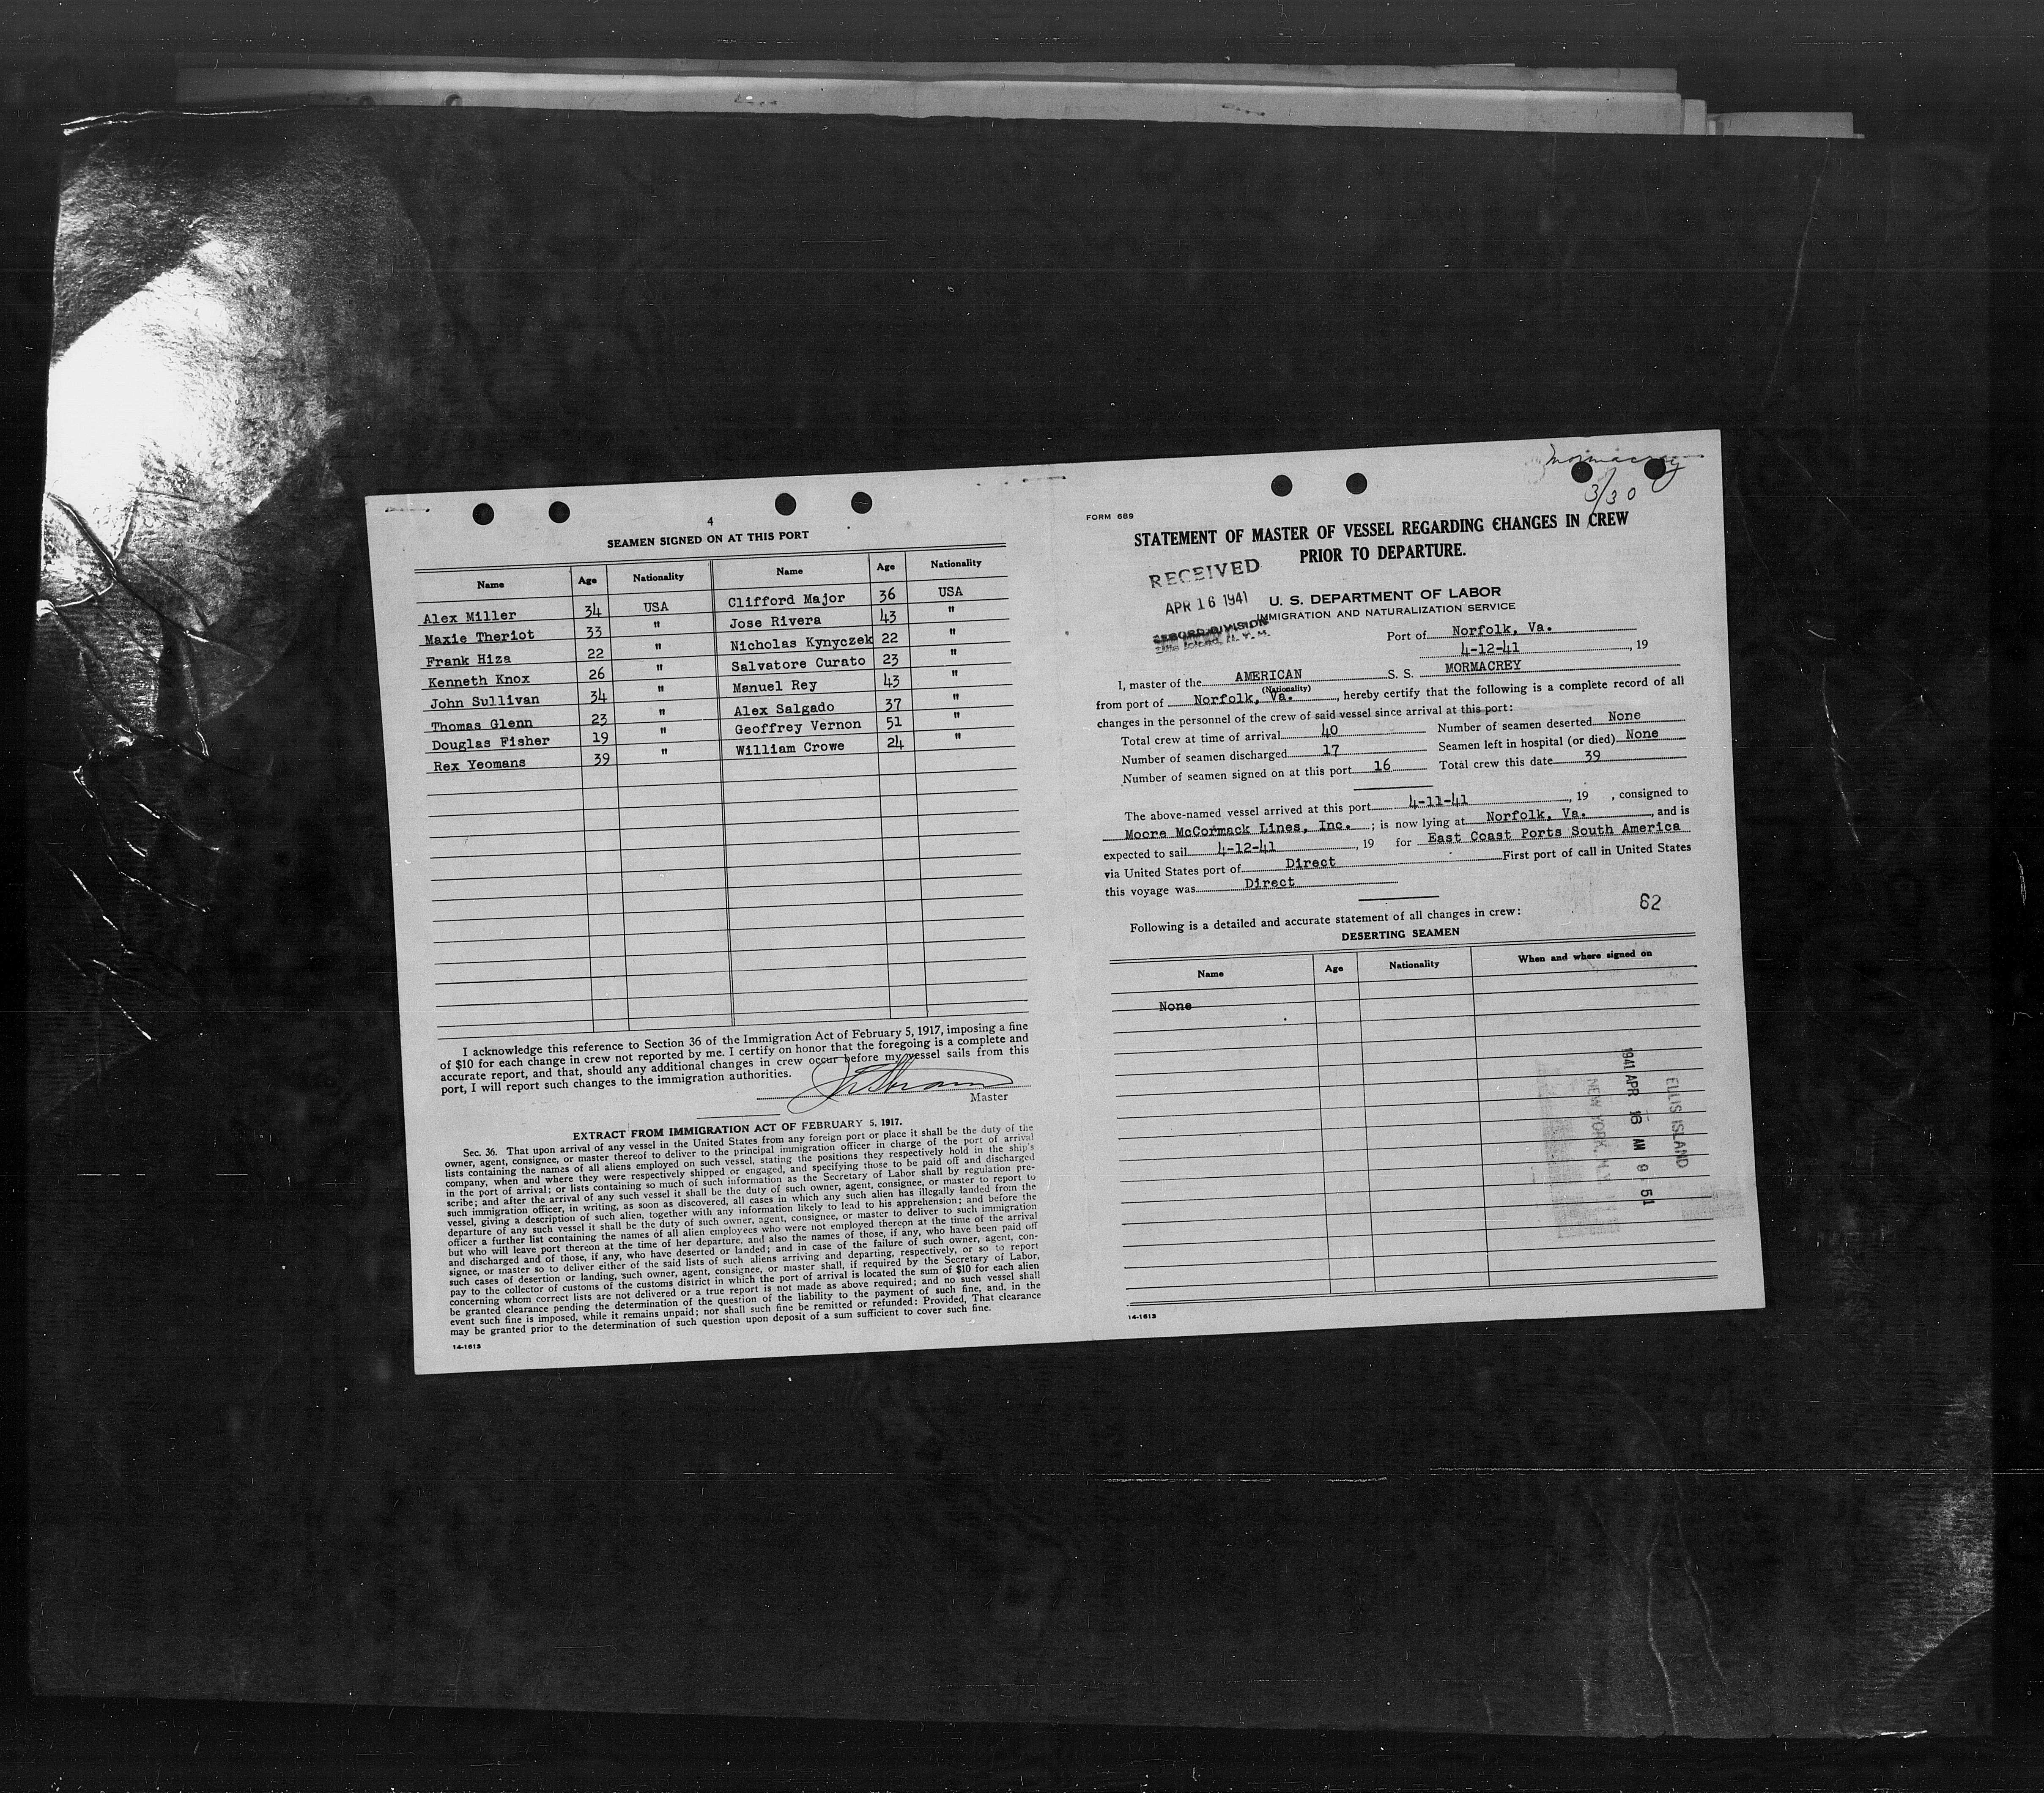 4
SEAMEN SIGNED ON AT THIS PORT
Name Age Nationality Name Age Nationality
Alex Miller 34 USA Clifford Major 36 USA
Maxie Theriot 33 " Jose Rivera 43 "
Frank Hiza 22 " Nicholas Kynyczek 22 "
Kenneth Knox 26 " Salvatore Curato 23 "
John Sullivan 34 " Manuel Rey 43 "
Thomas Glenn 23 " Alex Salgado 37 "
Douglas Fisher 19 " Geoffrey Vernon 51 "
Rex Yeomans 39 " William Crowe 24 "
I acknowledge this reference to Section 36 of the Immigration Act of February 5, 1917, imposing a fine
of $10 for each change in crew not reported by me. I certify on honor that the foregoing is a complete and
accurate report, and that, should any additional changes in crew occur before my vessel sails from this
port, I will report such changes to the immigration authorities.
Master
EXTRACT FROM IMMIGRATION ACT OF FEBRUARY 5, 1917.
Sec. 36. That upon arrival of any vessel in the United States from any foreign port or place it shall be the duty of the
owner, agent, consignee, or master thereof to deliver to the principal immigration officer in charge of the port of arrival
lists containing the names of all aliens employed on such vessel, stating the positions they respectively hold in the ship's
company, when and where they were respectively shipped or engaged, and specifying those to be paid off and discharged
in the port of arrival; or lists containing so much of such information as the Secretary of Labor shall by regulation pre-
scribe; and after the arrival of any such vessel it shall be the duty of such owner, agent, consignee, or master to report to
such immigration officer, in writing, as soon as discovered, all cases in which any such alien has illegally landed from the
vessel, giving a description of such alien, together with any information likely to lead to his apprehension; and before the
departure of any such vessel it shall be the duty of such owner, agent, consignee, or master to deliver to such immigration
officer a further list containing the names of all alien employees who were not employed thereon at the time of the arrival
but who will leave port thereon at the time of her departure, and also the names of those, if any, who have been paid off
and discharged and of those, if any, who have deserted or landed; and in case of the failure of such owner, agent, con-
signee, or master so to deliver either of the said lists of such aliens arriving and departing, respectively, or so to report
such cases of desertion or landing, such owner, agent, consignee, or master shall, if required by the Secretary of Labor,
pay to the collector of customs of the customs district in which the port of arrival is located the sum of $10 for each alien
concerning whom correct lists are not delivered or a true report is not made as above required; and no such vessel shall
be granted clearance pending the determination of the question of the liability to the payment of such fine, and, in the
event such fine is imposed, while it remains unpaid; nor shall such fine be remitted or refunded: Provided, That clearance
may be granted prior to the determination of such question upon deposit of a sum sufficient to cover such fine.
14-1613
Mormacrey
3/30
FORM 689
STATEMENT OF MASTER OF VESSEL REGARDING CHANGES IN CREW
PRIOR TO DEPARTURE.
RECEIVED
APR 16 1941
U. S. DEPARTMENT OF LABOR
IMMIGRATION AND NATURALIZATION SERVICE
Port of Norfolk, Va.
4-12-41, 19
I, master of the AMERICAN S. S. MORMACREY
(Nationality)
from port of Norfolk, Va., hereby certify that the following is a complete record of all
changes in the personnel of the crew of said vessel since arrival at this port:
Total crew at time of arrival 40 Number of seamen deserted None
Number of seamen discharged 17 Seamen left in hospital (or died) None
Number of seamen signed on at this port 16 Total crew this date 39
The above-named vessel arrived at this port 4-11-41, 19 , consigned to
Moore McCormack Lines, Inc. ; is now lying at Norfolk, Va. , and is
expected to sail 4-12-41, 19 for East Coast Ports South America
via United States port of Direct First port of call in United States
this voyage was Direct
62
Following is a detailed and accurate statement of all changes in crew:
DESERTING SEAMEN
Name Age Nationality When and where signed on
None
1941 APR 16 AM 9 51
ELLIS ISLAND
NEW YORK, N.Y.
14-1613